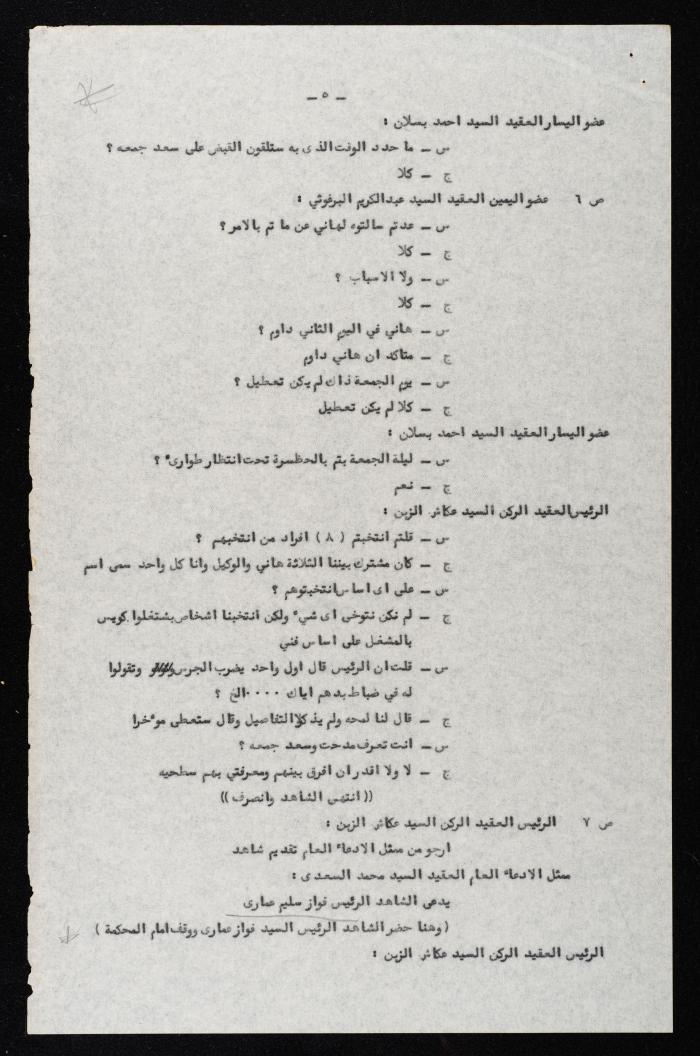 ـ ٥ ـ
عضو اليسار العقيد السيد احمد بسلان :
س ـ ما حدد الوقت الذى به ستلقون القبض على سعد جمعه ؟
ج ـ كلا
ص ٦ عضو اليمين العقيد السيد عبدالكريم البرغوثي :
س ـ عدتم سالتوه لهاني عن ما تم بالامر ؟
ج ـ كلا
س ـ ولا الاسباب ؟
ج ـ كلا
س ـ هاني في اليوم الثاني داوم ؟
ج ـ متاكد ان هاني داوم
س ـ يوم الجمعة ذاك لم يكن تعطيل ؟
ج ـ كلا لم يكن تعطيل
عضو اليسار العقيد السيد احمد بسلان :
س ـ ليلة الجمعة بتم بالحظسرة تحت انتظار طوارىء ؟
ج ـ نعم
الرئيس العقيد الركن السيد عكاش الزبن :
س ـ قلتم انتخبتم ( ٨ ) افراد من انتخبهم ؟
ج ـ كان مشترك بيننا الثلاثة هاني والوكيل وانا كل واحد سمى اسم
س ـ على اى اساس انتخبتوهم ؟
ج ـ لم نكن نتوخى اى شيء ولكن انتخبنا اشخاص بشتغلوا كويس
بالمشغل على اساس فني
س ـ قلت ان الرئيس قال اول واحد يضرب الجرس وتقولوا
له في ضباط بدهم اياك ٠٠٠٠ الخ ؟
ج ـ قال لنا لمحه ولم يذكر التفاصيل وقال ستعطى موءخرا
س ـ انت تعرف مدحت وسعد جمعه ؟
ج ـ لا ولا اقدر ان افرق بينهم ومعرفتي بهم سطحيه
(( انتهى الشاهد وانصرف ))
ص ٧ الرئيس العقيد الركن السيد عكاش الزبن :
ارجو من ممثل الادعاء العام تقديم شاهد
ممثل الادعاء العام العقيد السيد محمد السعدى :
يدعى الشاهد الرئيس فواز سليم عمارى
( وهنا حضر الشاهد الرئيس السيد فواز عمارى ووقف امام المحكمة )
الرئيس العقيد الركن السيد عكاش الزبن :